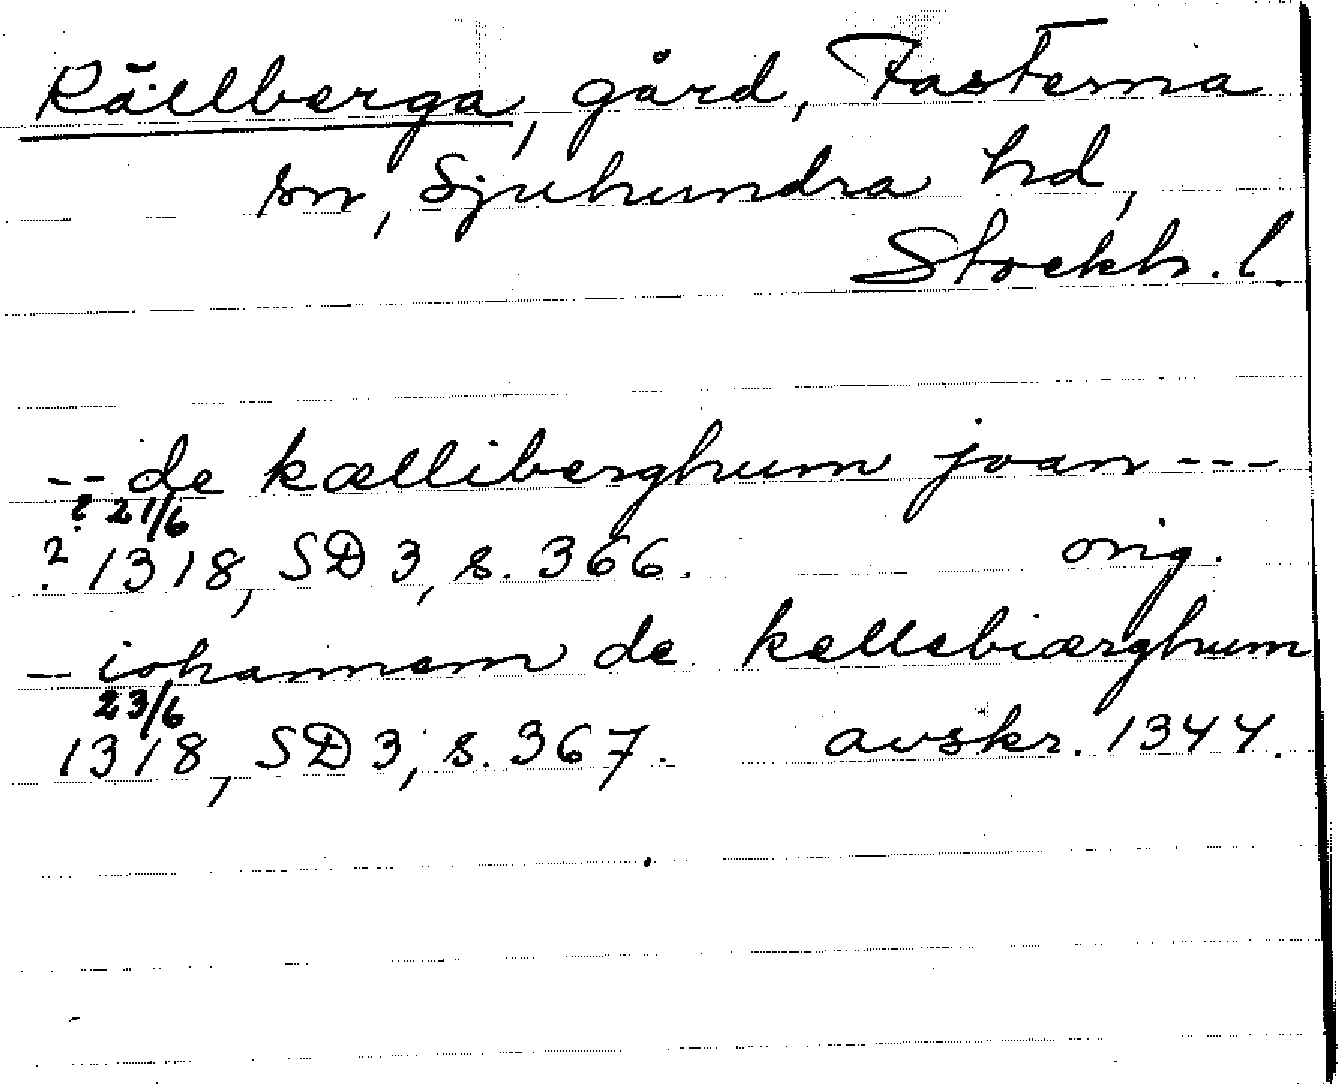 Källberga, gård, Fasterna
sn, Sjuhundra hd,
Stockh. l.
-- de kælliberghum joan ---
? 21/6
? 1318, SD 3, s. 366. orig.
- iohannem de kellebiærghum
23/6
1318, SD 3, s. 367. avskr. 1344.